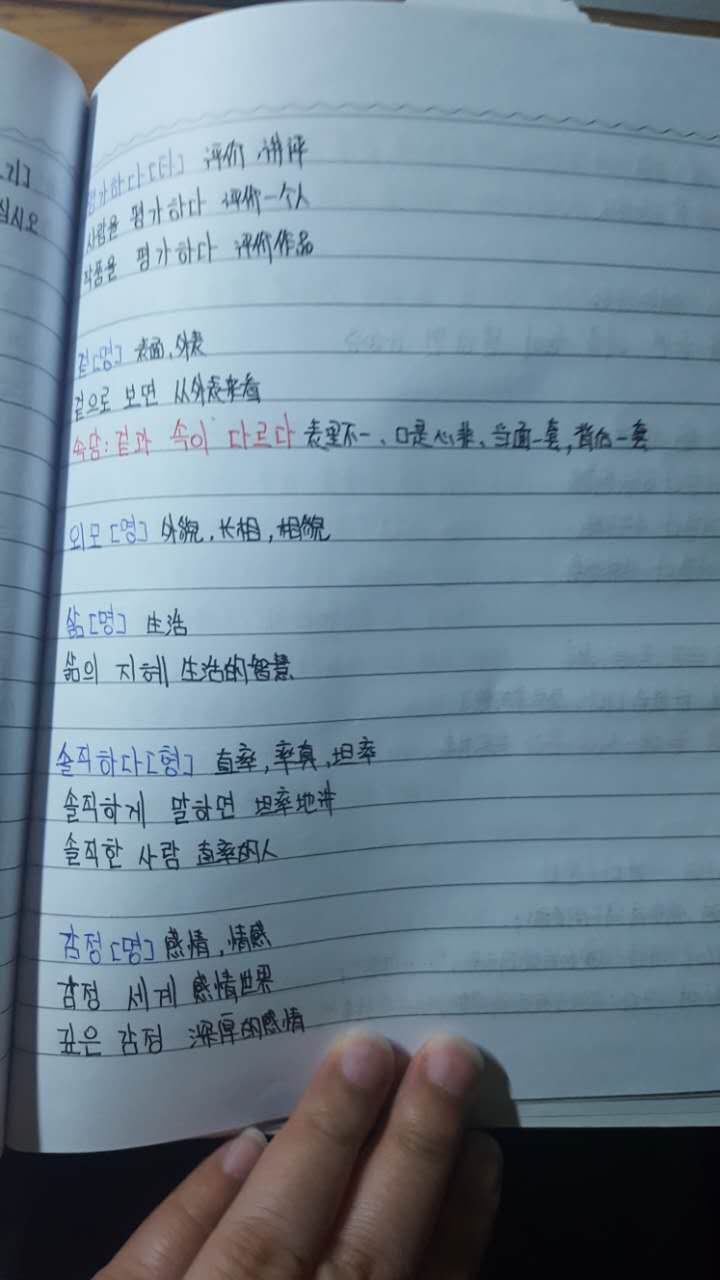 ..기]
십시오
평가하다[타] 评价,讲评
사람을 평가하다 评价一个人
작품을 평가하다 评价作品
겉[명] 表面,外表
겉으로 보면 从外表来看
속담:겉과 속이 다르다 表里不一、口是心非、当面一套,背后一套
외모[명] 外貌,长相,相貌
삶[명] 生活
삶의 지혜 生活的智慧
솔직하다[형] 直率,率真,坦率
솔직하게 말하면 坦率地讲
솔직한 사람 直率的人
감정[명] 感情,情感
감정 세계 感情世界
깊은 감정 深厚的感情